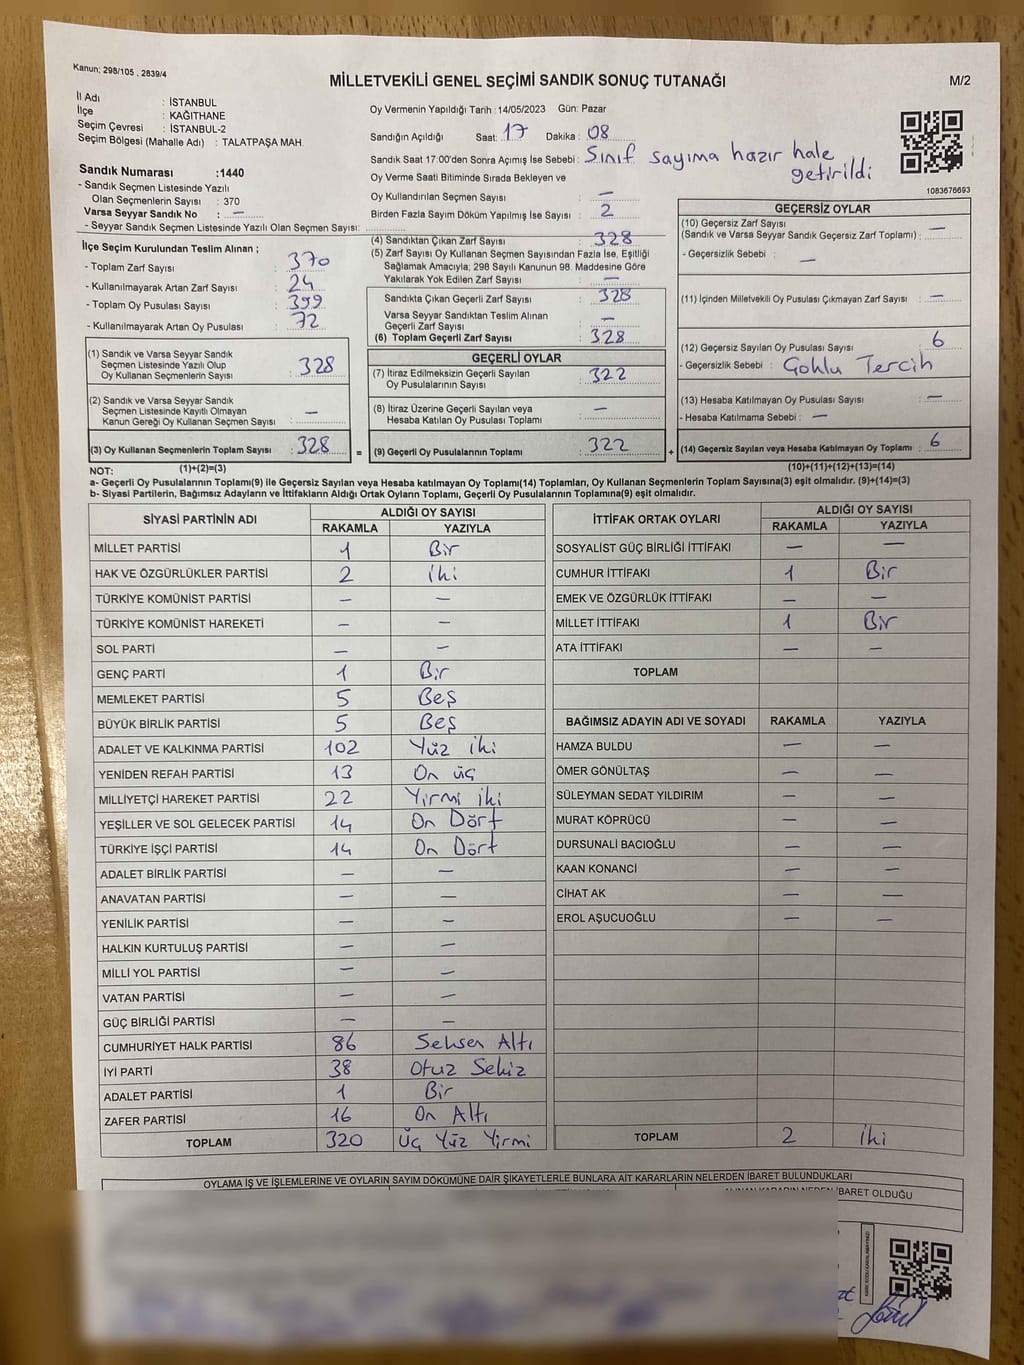 Kanun: 298/105 , 2839/4
MİLLETVEKİLİ GENEL SEÇİMİ SANDIK SONUÇ TUTANAĞI
M/2
İl Adı : İSTANBUL
İlçe : KAĞITHANE
Seçim Çevresi : İSTANBUL-2
Seçim Bölgesi (Mahalle Adı) : TALATPAŞA MAH.
Oy Vermenin Yapıldığı Tarih : 14/05/2023 Gün: Pazar
Sandığın Açıldığı Saat: 17 Dakika : 08
Sandık Saat 17:00'den Sonra Açımış İse Sebebi : Sınıf sayıma hazır hale
getirildi
Oy Verme Saati Bitiminde Sırada Bekleyen ve
Oy Kullandırılan Seçmen Sayısı : —
Birden Fazla Sayım Döküm Yapılmış İse Sayısı : 2
1083676693
Sandık Numarası :1440
- Sandık Seçmen Listesinde Yazılı
Olan Seçmenlerin Sayısı : 370
Varsa Seyyar Sandık No : —
- Seyyar Sandık Seçmen Listesinde Yazılı Olan Seçmen Sayısı:
İlçe Seçim Kurulundan Teslim Alınan ;
- Toplam Zarf Sayısı : 370
- Kullanılmayarak Artan Zarf Sayısı : 24
- Toplam Oy Pusulası Sayısı : 399
- Kullanılmayarak Artan Oy Pusulası : 72
(1) Sandık ve Varsa Seyyar Sandık
Seçmen Listesinde Yazılı Olup
Oy Kullanan Seçmenlerin Sayısı : 328
(2) Sandık ve Varsa Seyyar Sandık
Seçmen Listesinde Kayıtlı Olmayan
Kanun Gereği Oy Kullanan Seçmen Sayısı : —
(3) Oy Kullanan Seçmenlerin Toplam Sayısı : 328 =
(4) Sandıktan Çıkan Zarf Sayısı : 328
(5) Zarf Sayısı Oy Kullanan Seçmen Sayısından Fazla İse, Eşitliği
Sağlamak Amacıyla, 298 Sayılı Kanunun 98. Maddesine Göre
Yakılarak Yok Edilen Zarf Sayısı : —
Sandıkta Çıkan Geçerli Zarf Sayısı : 328
Varsa Seyyar Sandıktan Teslim Alınan
Geçerli Zarf Sayısı : —
(6) Toplam Geçerli Zarf Sayısı : 328
GEÇERLİ OYLAR
(7) İtiraz Edilmeksizin Geçerli Sayılan
Oy Pusulalarının Sayısı : 322
(8) İtiraz Üzerine Geçerli Sayılan veya
Hesaba Katılan Oy Pusulası Toplamı : —
(9) Geçerli Oy Pusulalarının Toplamı : 322 +
GEÇERSİZ OYLAR
(10) Geçersiz Zarf Sayısı
(Sandık ve Varsa Seyyar Sandık Geçersiz Zarf Toplamı) : —
- Geçersizlik Sebebi : —
(11) İçinden Milletvekili Oy Pusulası Çıkmayan Zarf Sayısı : —
(12) Geçersiz Sayılan Oy Pusulası Sayısı : 6
- Geçersizlik Sebebi : Çoklu Tercih
(13) Hesaba Katılmayan Oy Pusulası Sayısı : —
- Hesaba Katılmama Sebebi : —
(14) Geçersiz Sayılan veya Hesaba Katılmayan Oy Toplamı : 6
NOT: (1)+(2)=(3) (10)+(11)+(12)+(13)=(14)
a- Geçerli Oy Pusulalarının Toplamı(9) ile Geçersiz Sayılan veya Hesaba katılmayan Oy Toplamı(14) Toplamları, Oy Kullanan Seçmenlerin Toplam Sayısına(3) eşit olmalıdır. (9)+(14)=(3)
b- Siyasi Partilerin, Bağımsız Adayların ve İttifakların Aldığı Ortak Oyların Toplamı, Geçerli Oy Pusulalarının Toplamına(9) eşit olmalıdır.
SİYASİ PARTİNİN ADI ALDIĞI OY SAYISI
RAKAMLA YAZIYLA
MİLLET PARTİSİ 1 Bir
HAK VE ÖZGÜRLÜKLER PARTİSİ 2 iki
TÜRKİYE KOMÜNİST PARTİSİ — —
TÜRKİYE KOMÜNİST HAREKETİ — —
SOL PARTİ — —
GENÇ PARTİ 1 Bir
MEMLEKET PARTİSİ 5 Beş
BÜYÜK BİRLİK PARTİSİ 5 Beş
ADALET VE KALKINMA PARTİSİ 102 Yüz iki
YENİDEN REFAH PARTİSİ 13 On üç
MİLLİYETÇİ HAREKET PARTİSİ 22 Yirmi iki
YEŞİLLER VE SOL GELECEK PARTİSİ 14 On Dört
TÜRKİYE İŞÇİ PARTİSİ 14 On Dört
ADALET BİRLİK PARTİSİ — —
ANAVATAN PARTİSİ — —
YENİLİK PARTİSİ — —
HALKIN KURTULUŞ PARTİSİ — —
MİLLİ YOL PARTİSİ — —
VATAN PARTİSİ — —
GÜÇ BİRLİĞİ PARTİSİ — —
CUMHURİYET HALK PARTİSİ 86 Seksen Altı
İYİ PARTİ 38 Otuz Sekiz
ADALET PARTİSİ 1 Bir
ZAFER PARTİSİ 16 On Altı
TOPLAM 320 Üç Yüz Yirmi
İTTİFAK ORTAK OYLARI ALDIĞI OY SAYISI
RAKAMLA YAZIYLA
SOSYALİST GÜÇ BİRLİĞİ İTTİFAKI — —
CUMHUR İTTİFAKI 1 Bir
EMEK VE ÖZGÜRLÜK İTTİFAKI — —
MİLLET İTTİFAKI 1 Bir
ATA İTTİFAKI — —
TOPLAM
BAĞIMSIZ ADAYIN ADI VE SOYADI RAKAMLA YAZIYLA
HAMZA BULDU — —
ÖMER GÖNÜLTAŞ — —
SÜLEYMAN SEDAT YILDIRIM — —
MURAT KÖPRÜCÜ — —
DURSUNALİ BACIOĞLU — —
KAAN KONANCİ — —
CİHAT AK — —
EROL AŞUCUOĞLU — —
TOPLAM 2 iki
OYLAMA İŞ VE İŞLEMLERİNE VE OYLARIN SAYIM DÖKÜMÜNE DAİR ŞİKAYETLERLE BUNLARA AİT KARARLARIN NELERDEN İBARET BULUNDUKLARI
İBARET OLDUĞU